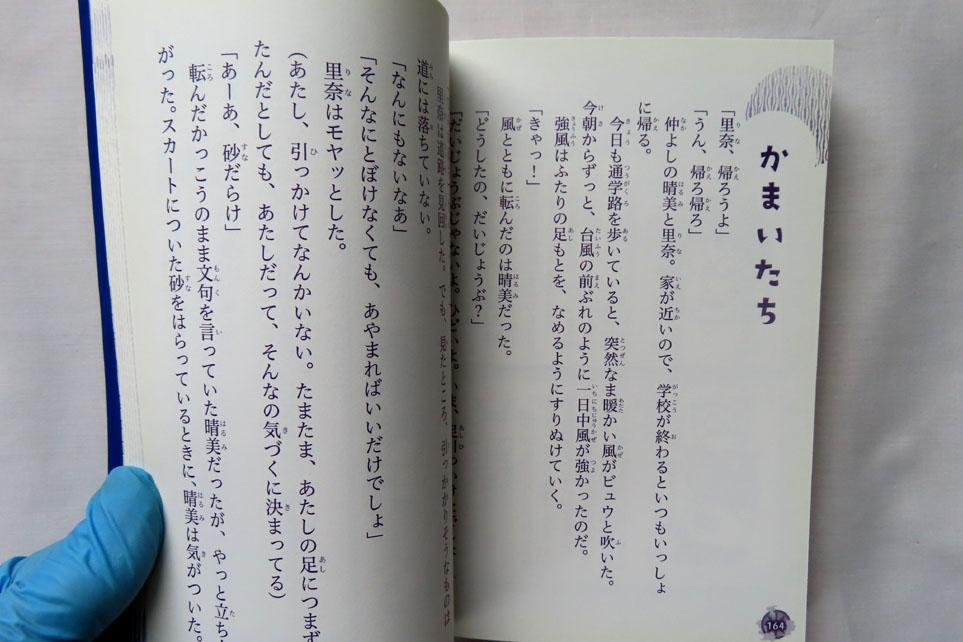 かまいたち
「里奈、帰ろうよ」
「うん、帰ろ帰ろ」
仲よしの晴美と里奈。家が近いので、学校が終わるといつもいっしょ
に帰る。
今日も通学路を歩いていると、突然なま暖かい風がビュウと吹いた。
今朝からずっと、台風の前ぶれのように一日中風が強かったのだ。
強風はふたりの足もとを、なめるようにすりぬけていく。
「きゃっ！」
風とともに転んだのは晴美だった。
「どうしたの、だいじょうぶ？」
「だいじょうぶじゃないよ。ひどいよ。いま、足引っかけ
164
里奈は道路を見回した。でも、見たところ、引っかかりそうなものは
道には落ちていない。
「なんにもないなあ」
「そんなにとぼけなくても、あやまればいいだけでしょ」
里奈はモヤッとした。
（あたし、引っかけてなんかいない。たまたま、あたしの足につまず
たんだとしても、あたしだって、そんなの気づくに決まってる）
「あーあ、砂だらけ」
転んだかっこうのまま文句を言っていた晴美だったが、やっと立ち
がった。スカートについた砂をはらっているときに、晴美は気がついた。